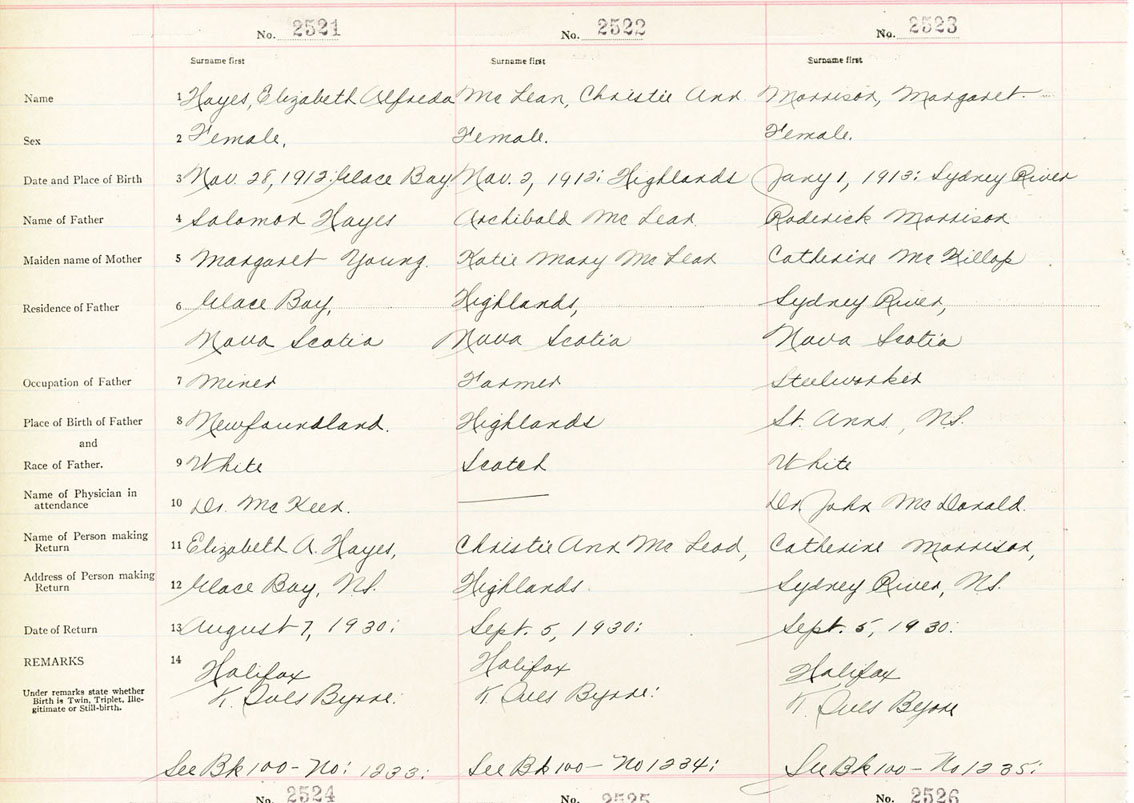 No. 2521 No. 2522 No. 2523
Surname first Surname first Surname first
Name 1 Hayes, Elizabeth Alfreda Mc Lean, Christie Ann Morrison, Margaret
Sex 2 Female, Female. Female.
Date and Place of Birth 3 Nov. 28, 1912: Glace Bay Nov. 2, 1912: Highlands Jany 1, 1913: Sydney River
Name of Father 4 Solomon Hayes Archibald Mc Lean Roderick Morrison
Maiden name of Mother 5 Margaret Young. Katie Mary Mc Lean Catherine Mc Killop
Residence of Father 6 Glace Bay, Highlands, Sydney River,
Nova Scotia Nova Scotia Nova Scotia
Occupation of Father 7 Miner Farmer Steelworker
Place of Birth of Father 8 Newfoundland. Highlands St. Anns, N.S.
and
Race of Father. 9 White Scotch White
Name of Physician in
attendance 10 Dr. Mc Keen. Dr. John Mc Donald.
Name of Person making
Return 11 Elizabeth A. Hayes, Christie Ann Mc Leod, Catherine Morrison,
Address of Person making
Return 12 Glace Bay, N.S. Highlands Sydney River, N.S.
Date of Return 13 August 7, 1930: Sept. 5, 1930: Sept. 5, 1930:
REMARKS 14 Halifax Halifax Halifax
Under remarks state whether
Birth is Twin, Triplet, Ille-
gitimate or Still-birth.
K. Byrne: K. Byrne: K. Byrne
See Bk 100 - No: 1233: See Bk 100 - No 1234: See Bk 100 - No 1235:
No. 2524 No. 2525 No. 2526